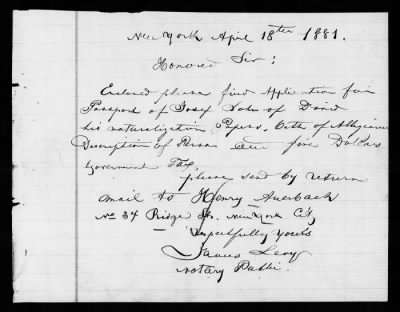 New York April 18th 1881.
Honored Sir:
Enclosed please find Application for
Passport of Josef of David
his naturalization Papers. Oath of Allegiance
Description of Person and five Dollars
Government Tax,
please send by return
mail to Henry Auerbach
No 34 Ridge St. New York City
Respectfully Yours
James Levy
Notary Public.